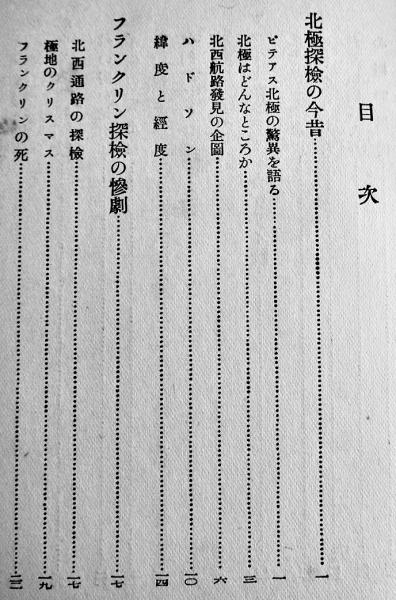 目次
北極探檢の今昔……一
ピテアス北極の驚異を語る……一
北極はどんなところか……三
北西航路發見の企圖……六
ハドソン……一〇
緯度と經度……一四
フランクリン探檢の慘劇……一七
北西通路の探檢……一七
極地のクリスマス……一九
フランクリンの死……二二